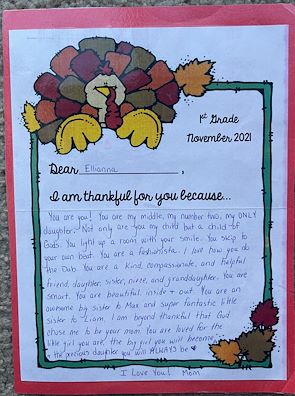 1st Grade
November 2021
Dear Ellianna,
I am thankful for you because...
You are you! You are my middle, my number two, my ONLY
daughter. Not only are you my child but a child of
Gods. You light up a room with your smile. You skip to
your own beat. You are a fashionista. I love how you do
the Dab. You are a kind, compassionate, and helpful
friend, daughter, sister, niece, and granddaughter. You are
smart. You are beautiful inside + out. You are an
awesome big sister to Max and super fantastic little
sister to Liam. I am beyond thankful that God
chose me to be your mom. You are loved for the
little girl you are, the big girl you will become,
the precious daughter you will ALWAYS be ♥
I Love You! Mom